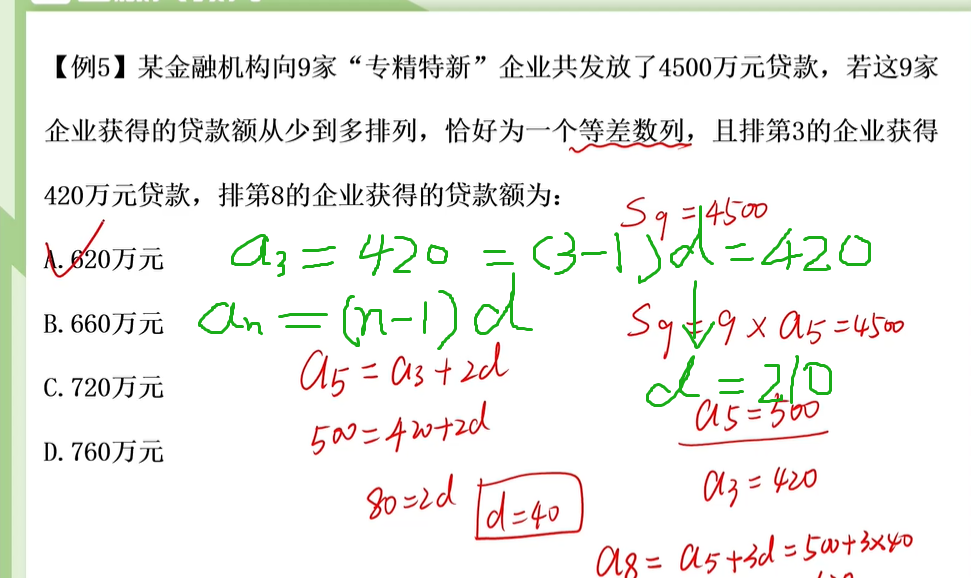 【例5】某金融机构向9家“专精特新”企业共发放了4500万元贷款，若这9家
企业获得的贷款额从少到多排列，恰好为一个等差数列，且排第3的企业获得
420万元贷款，排第8的企业获得的贷款额为：
S9=4500
A.620万元
a3=420=(3-1)d=420
B.660万元
an=(n-1)d
S9=9×a5=4500
a5=a3+2d
C.720万元
d=210
a5=500
500=420+2d
D.760万元
a3=420
80=2d
d=40
a8=a5+3d=500+3×40